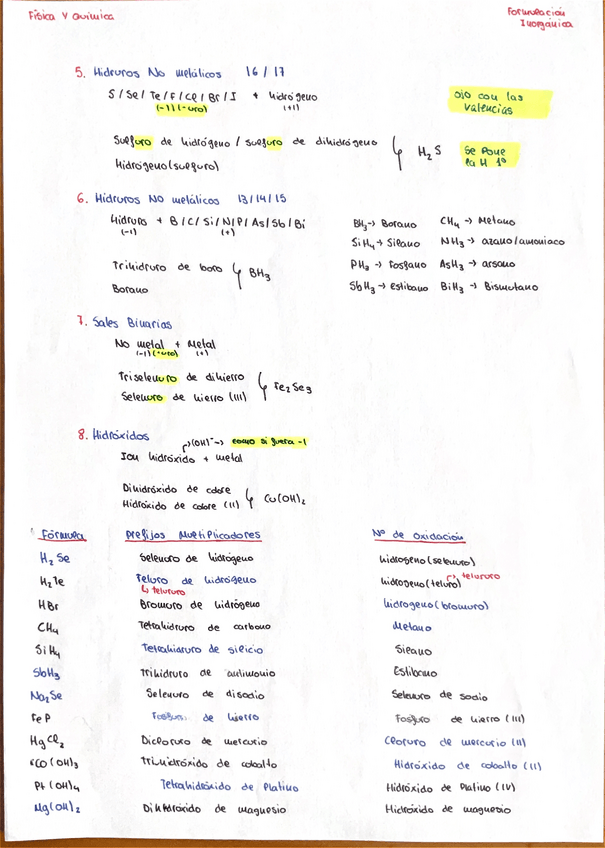 Física y Química
Formulación
Inorgánica
5. Hidruros No metálicos 16/17
S/Se/Te/F/Cl/Br/I + hidrógeno
(-1)(-uro) (+1)
ojo con las
valencias
Sulfuro de hidrógeno / sulfuro de dihidrógeno
Hidrógeno(sulfuro)
H₂S
se pone
la H 1º
6. Hidruros No metálicos 13/14/15
Hidruro + B/C/Si/N/P/As/Sb/Bi
(-1) (+)
Trihidruro de boro
Borano
BH₃
BH₃→ Borano CH₄ → Metano
SiH₄→ Silano NH₃ → azano/amoniaco
PH₃ → fosfano AsH₃ → arsano
SbH₃ → estibano BiH₃ → Bismutano
7. Sales Binarias
No metal + Metal
(-1)(-uro) (+)
Triselenuro de dihierro
Selenuro de hierro (III)
Fe₂Se₃
8. Hidróxidos
→(OH)⁻→ como si fuera -1
Ion hidróxido + metal
Dihidróxido de cobre
Hidróxido de cobre (II)
Cu(OH)₂
Fórmula Prefijos Multiplicadores Nº de oxidación
H₂Se Selenuro de hidrógeno hidrogeno(selenuro)
H₂Te Teluro de hidrógeno hidrogeno(teluro) → telururo
↳ telururo
HBr Bromuro de hidrógeno hidrogeno(bromuro)
CH₄ Tetrahidruro de carbono Metano
SiH₄ Tetrahidruro de silicio Silano
SbH₃ Trihidruro de antimonio Estibano
Na₂Se Selenuro de disodio Selenuro de sodio
FeP Fosfuro de hierro Fosfuro de hierro (III)
HgCl₂ Dicloruro de mercurio Cloruro de mercurio (II)
CO(OH)₃ Trihidróxido de cobalto Hidróxido de cobalto (II)
Pt(OH)₄ Tetrahidróxido de Platino Hidróxido de Platino (IV)
Mg(OH)₂ Dihidróxido de magnesio Hidróxido de magnesio